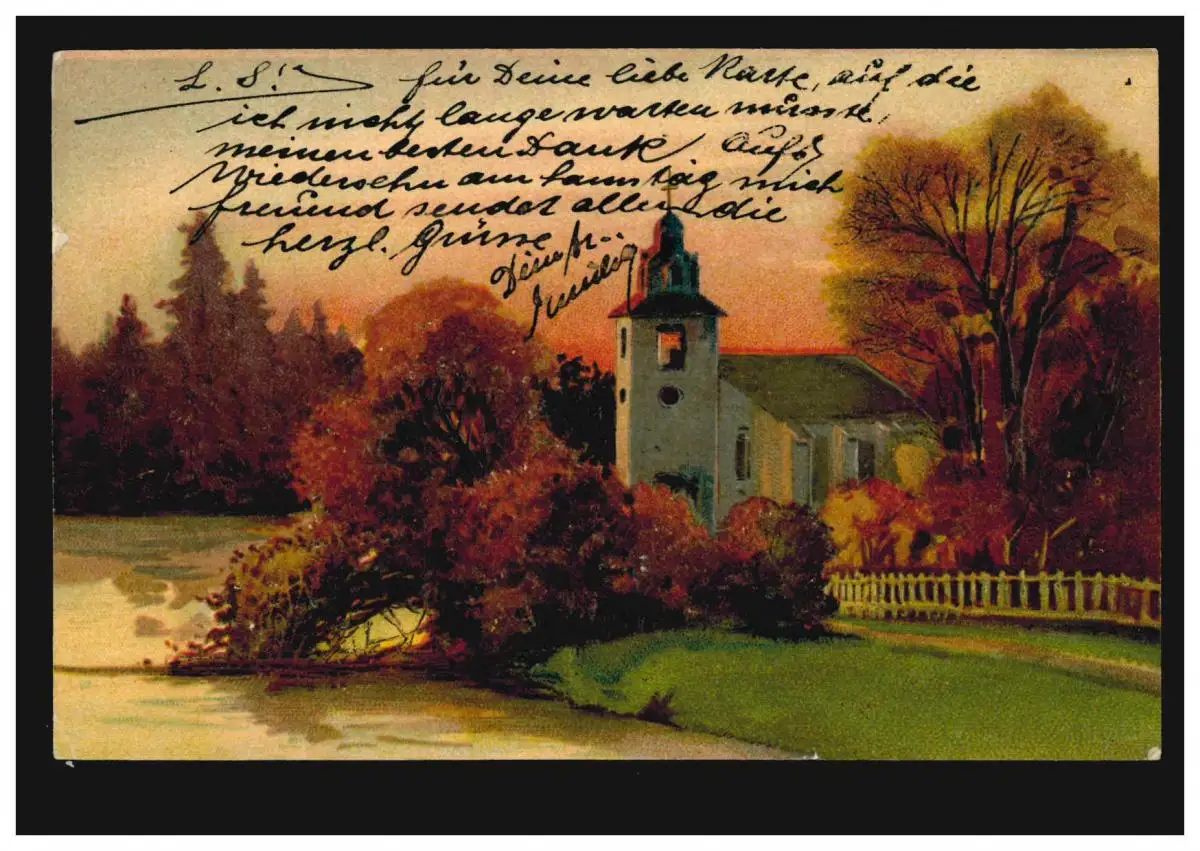 L. S! für Deine liebe Karte, auf die
ich nicht lange warten musste,
meinen besten Dank. Aufs
Wiedersehn am Samstag mich
freuend sendet allen die
herzl. Grüsse
Dein fr..